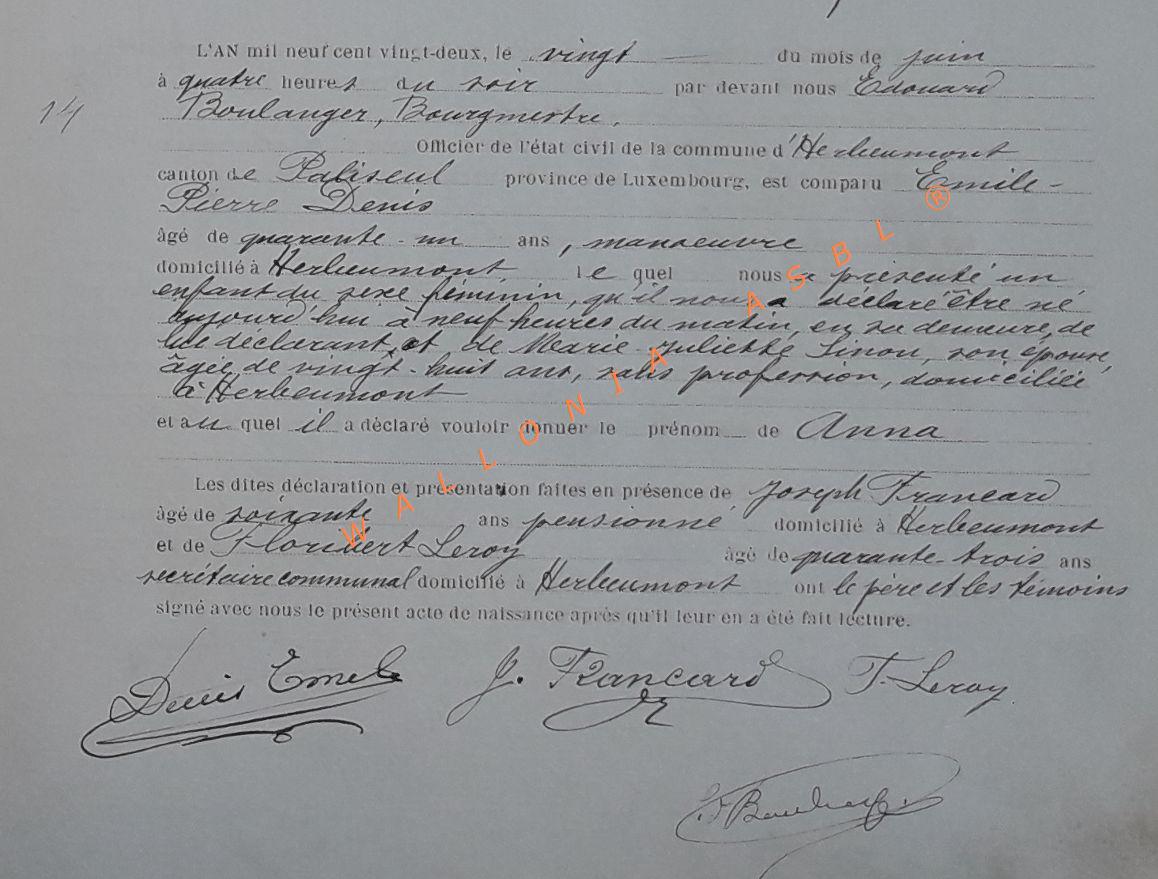 L'AN mil neuf cent vingt-deux, le vingt du mois de juin
à quatre heures du soir par devant nous Edouard
14
Boulanger, Bourgmestre,
Officier de l'état civil de la commune d'Herbeumont
canton de Paliseul province de Luxembourg, est comparu Emile-
Pierre Denis
âgé de quarante-un ans, manoeuvre
domicilié à Herbeumont lequel nous a présenté un
enfant du sexe féminin, qu'il nous a déclaré être né
aujourd'hui à neuf heures du matin, en sa demeure, de
lui déclarant, et de Marie Juliette Sinon, son épouse,
âgée de vingt-huit ans, sans profession, domiciliée
à Herbeumont
et au quel il a déclaré vouloir donner le prénom de Anna
Les dites déclaration et présentation faites en présence de Joseph Francard
âgé de soixante ans pensionné domicilié à Herbeumont
et de Floribert Leroy âgé de quarante-trois ans
secrétaire communal domicilié à Herbeumont ont le père et les témoins
signé avec nous le présent acte de naissance après qu'il leur en a été fait lecture.
Denis Emile J. Francard F. Leroy
WALLONIA ASBL ®